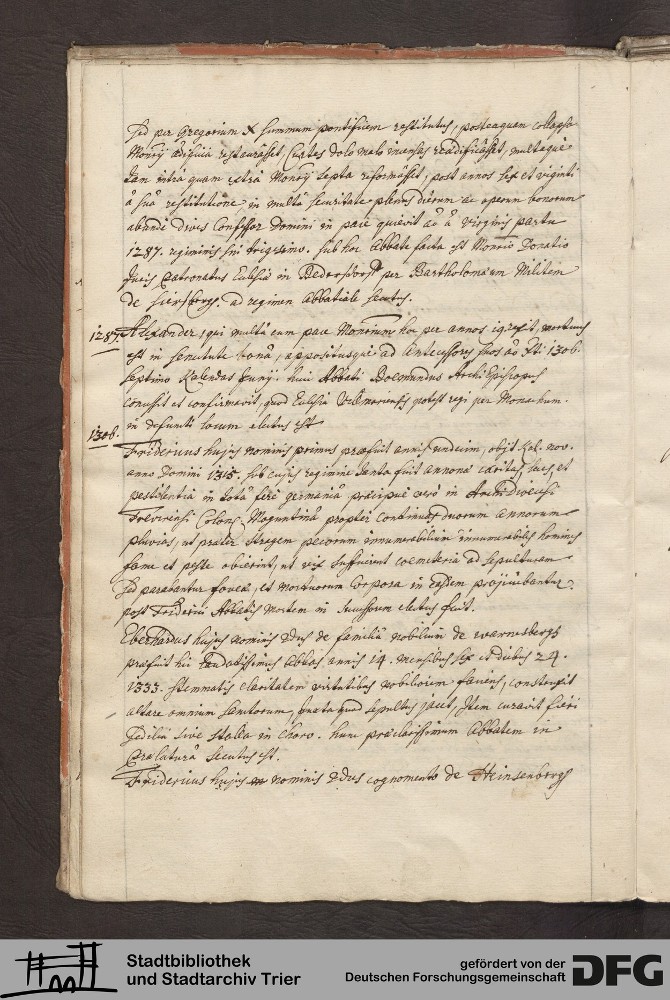 sed per Gregorium X summum pontificem restitutus, posteaquam collapsa
Monrÿ ædificia restaurasset, Curtes dolo malo incensas reædificasset, multaque
tam intra quam extra Monrÿ septa reformasset, post annos sex et viginti
à sua restitutione in multa securitate plenus dierum ac operum bonorum
abunde dives Confessor Domini in pace quievit aõ à Virginis partu
1287. regiminis sui trigesimo. sub hoc Abbate facta est Monrio Donatio
Juris Patronatus Ecclesiæ in Bedersdorff per Bartholomæum Militem
de Siersberg. ad regimen Abbatiale secutus.
1287. Alexander, qui multa cum pace Monrium hoc per annos 19 rexit, mortuus
est in senectute bona, appositusque ad Antecessores suos aõ Xti 1306.
septimo Kalendas Junÿ. huic Abbati Boemundus Archi Episcopus
concessit et confirmavit, quod Ecclesia Valmariensis potest regi per Monachum.
in defuncti locum electus est
1306. Fridericus hujus nominis primus præfuit annis undecim, obÿt Kal. nov.
anno Domini 1315. sub cujus regimine tanta fuit annonæ caritas, lues et
pestilentia in tota ferè germania, præcipuè verò in Archidiœcesi
Trevirensi Colon. Moguntina propter continuas duorum annorum
pluvias, ut præter stragem pecorum innumerabilium innumerabiles homines
fame et peste obierint, ut vix sufficerent cœmeteria ad sepulturam
sed parabantur foveæ, et mortuorum corpora in easdem projiciebantur.
post Friderici Abbatis mortem in successorem electus fuit.
Eberhardus hujus nominis 2dus de familia nobilium de warnesbergh
præfuit hic laudatissimus Abbas annis 14. mensibus sex et diebus 24.
1333. stemmatis claritatem virtutibus nobiliorem faciens, construxit
altare omnium sanctorum, juxta quod sepultus jacet, Item curavit fieri
sedilia sive stalla in Choro. hunc præclarissimum Abbatem in
Prælatura secutus est.
Fridericus hujus nominis 2dus cognomento de Heinsenbergh
Stadtbibliothek
und Stadtarchiv Trier
gefördert von der
Deutschen Forschungsgemeinschaft
DFG